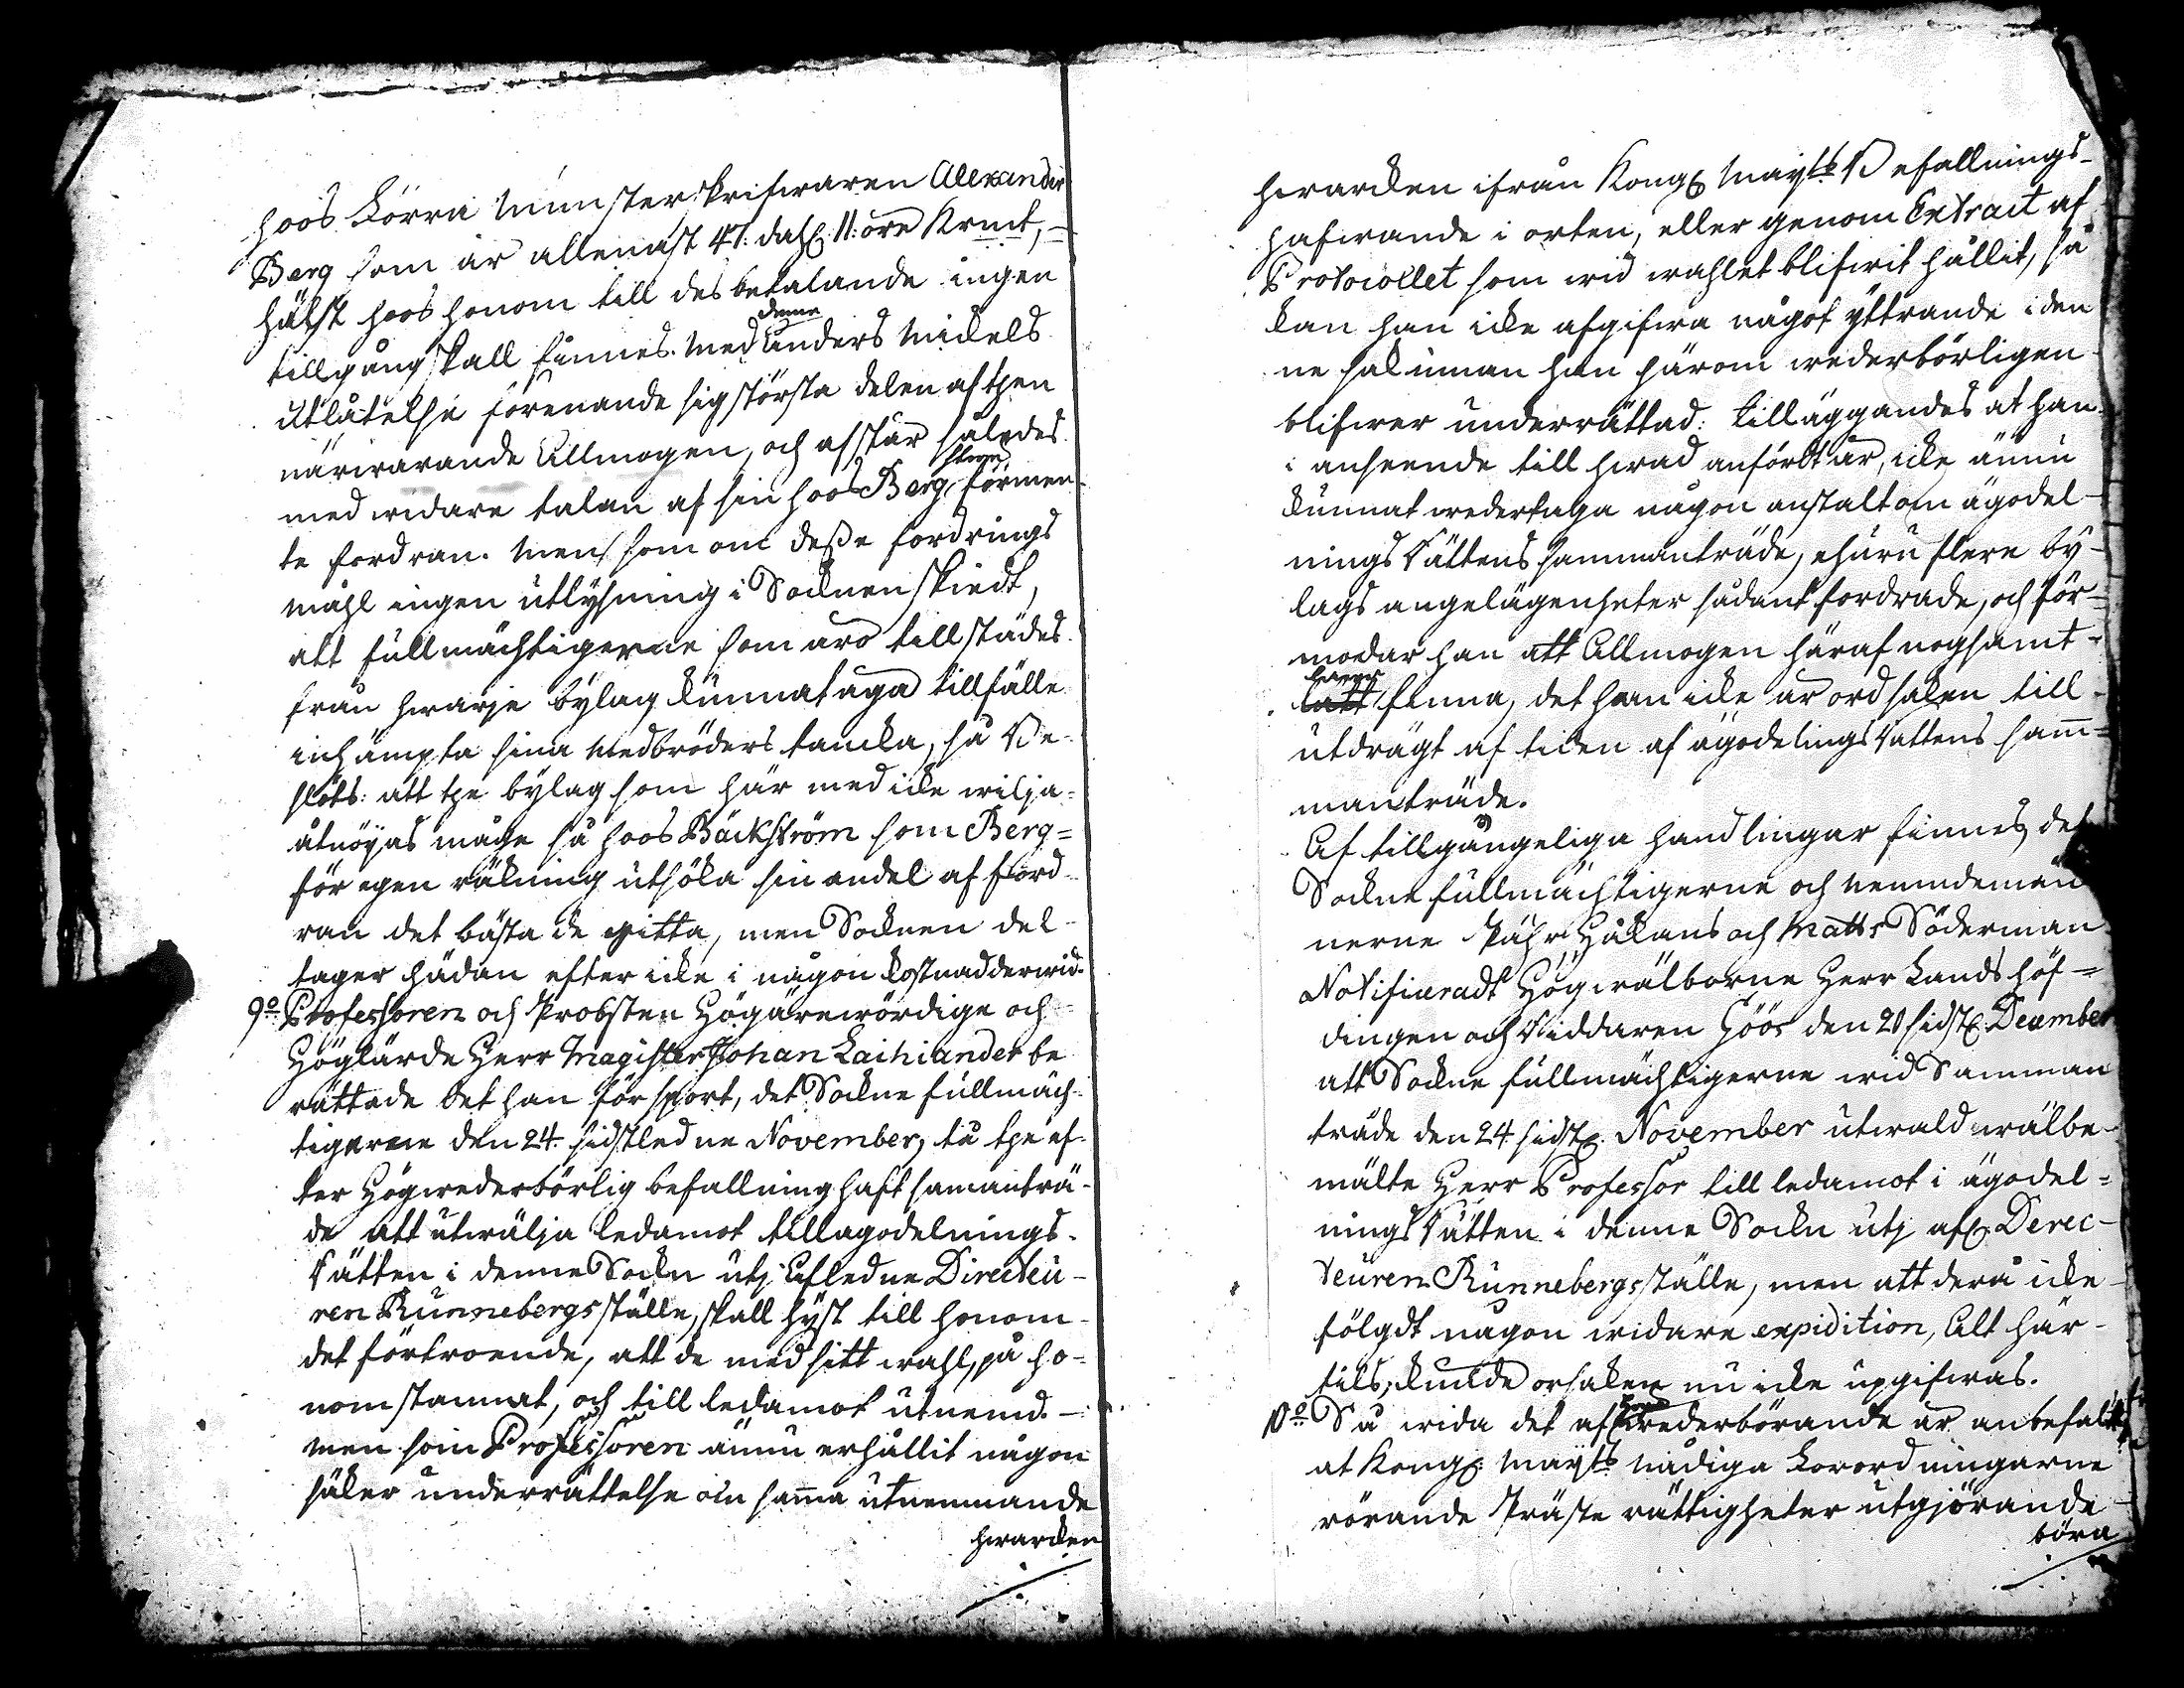 hoos Förra Munsterskrifwaren Alexander
Berg som är allenast 47: dahl 11: öre Krmt, –
hälst hoos honom till des betalande ingen
tillgång skall finnes. Med denna Anders Mickels
utlåtelse förenande sig största delen af then
närwarande Allmogen, och afstår således
med widare talan af sin hoos Berg förmen-
te fordran. Men som om desse fordrings
måhl ingen utlysning i Socknen skiedt,
att fullmächtigerne som äro tillstädes
från hwarje bylag kunnat äga tillfälle
inhämpta sina Medbröders tancka, så Be-
slöts: att the bylag som här med icke wilja
åtnöyas måge så hoos Bäckström som Berg
för egen räkning utsöka sin andel af ford-
ran det bästa de gitta, men Socknen del-
tager hädan efter icke i någon kostnad derwid.
9:o Professoren och Probsten Högärewördige och
Höglärde Herr Magister Johan Laihiander be
rättade det han försport, det Sockne fullmäch-
tigerne den 24. sidstledne November, tå the ef-
ter Högwederbörlig befallning haft samanträ-
de att utwälja ledamot till ägodelnings-
Rätten i denne Sockn uti Afledne Directeu-
ren Runnebergs ställe, skall hyst till honom
det förtroende, att de med sitt wahl, på ho-
nom stannat, och till ledamot utnemd. –
men som Professoren ännu erhållit någon
säker underrättelse om samma utnemnande
hwarcken
hwarcken ifrån Kongl Mayts Befallnings-
hafwande i orten, eller genom Extract af
Protocollet som wid wahlet blifwit hållit, så
kan han icke afgifwa något yttrande i den
ne sak innan han härom wederbörligen
blifwer underrättad: tilläggandes at han
i anseende till hwad anfördt är, icke ännu
kunnat wedertaga någon anstalt om ägodel-
nings Rättens sammanträde, ehuru flere by-
lags angelägenheter sådant fordrade, och för-
modar han att Allmogen häraf noghsamt
finna, det han icke är ordsaken till
utdrägt af tiden af ägodelings Rättens sam-
manträde.
Af tillgängeliga handlingar finnes, det
Sockne fullmächtigerne och nemndemän
nerne Pähr Håkans och Matts Söderman
Notificeradt Högwälborne Herr Landshöf-
dingen och Riddaren Höös den 20 sidstl. December
att Sockne fullmächtigerne wid Samman
träde den 24 sidstl. November utwald wälbe-
mälte Herr Professor till ledamot i ägodel-
nings Rätten i denne Sockn uti afl. Direc-
teuren Runnebergs ställe, men att derå icke
fölgdt någon widare expidition, Alt här-
tils, kunde orsaken nu icke upgifwas.
10:o Så wida det af Högwederbörande är anbefalt
at Kongl. Mayts nådiga Förordningarne
rörande Präste rättigheter utgjörande
böra